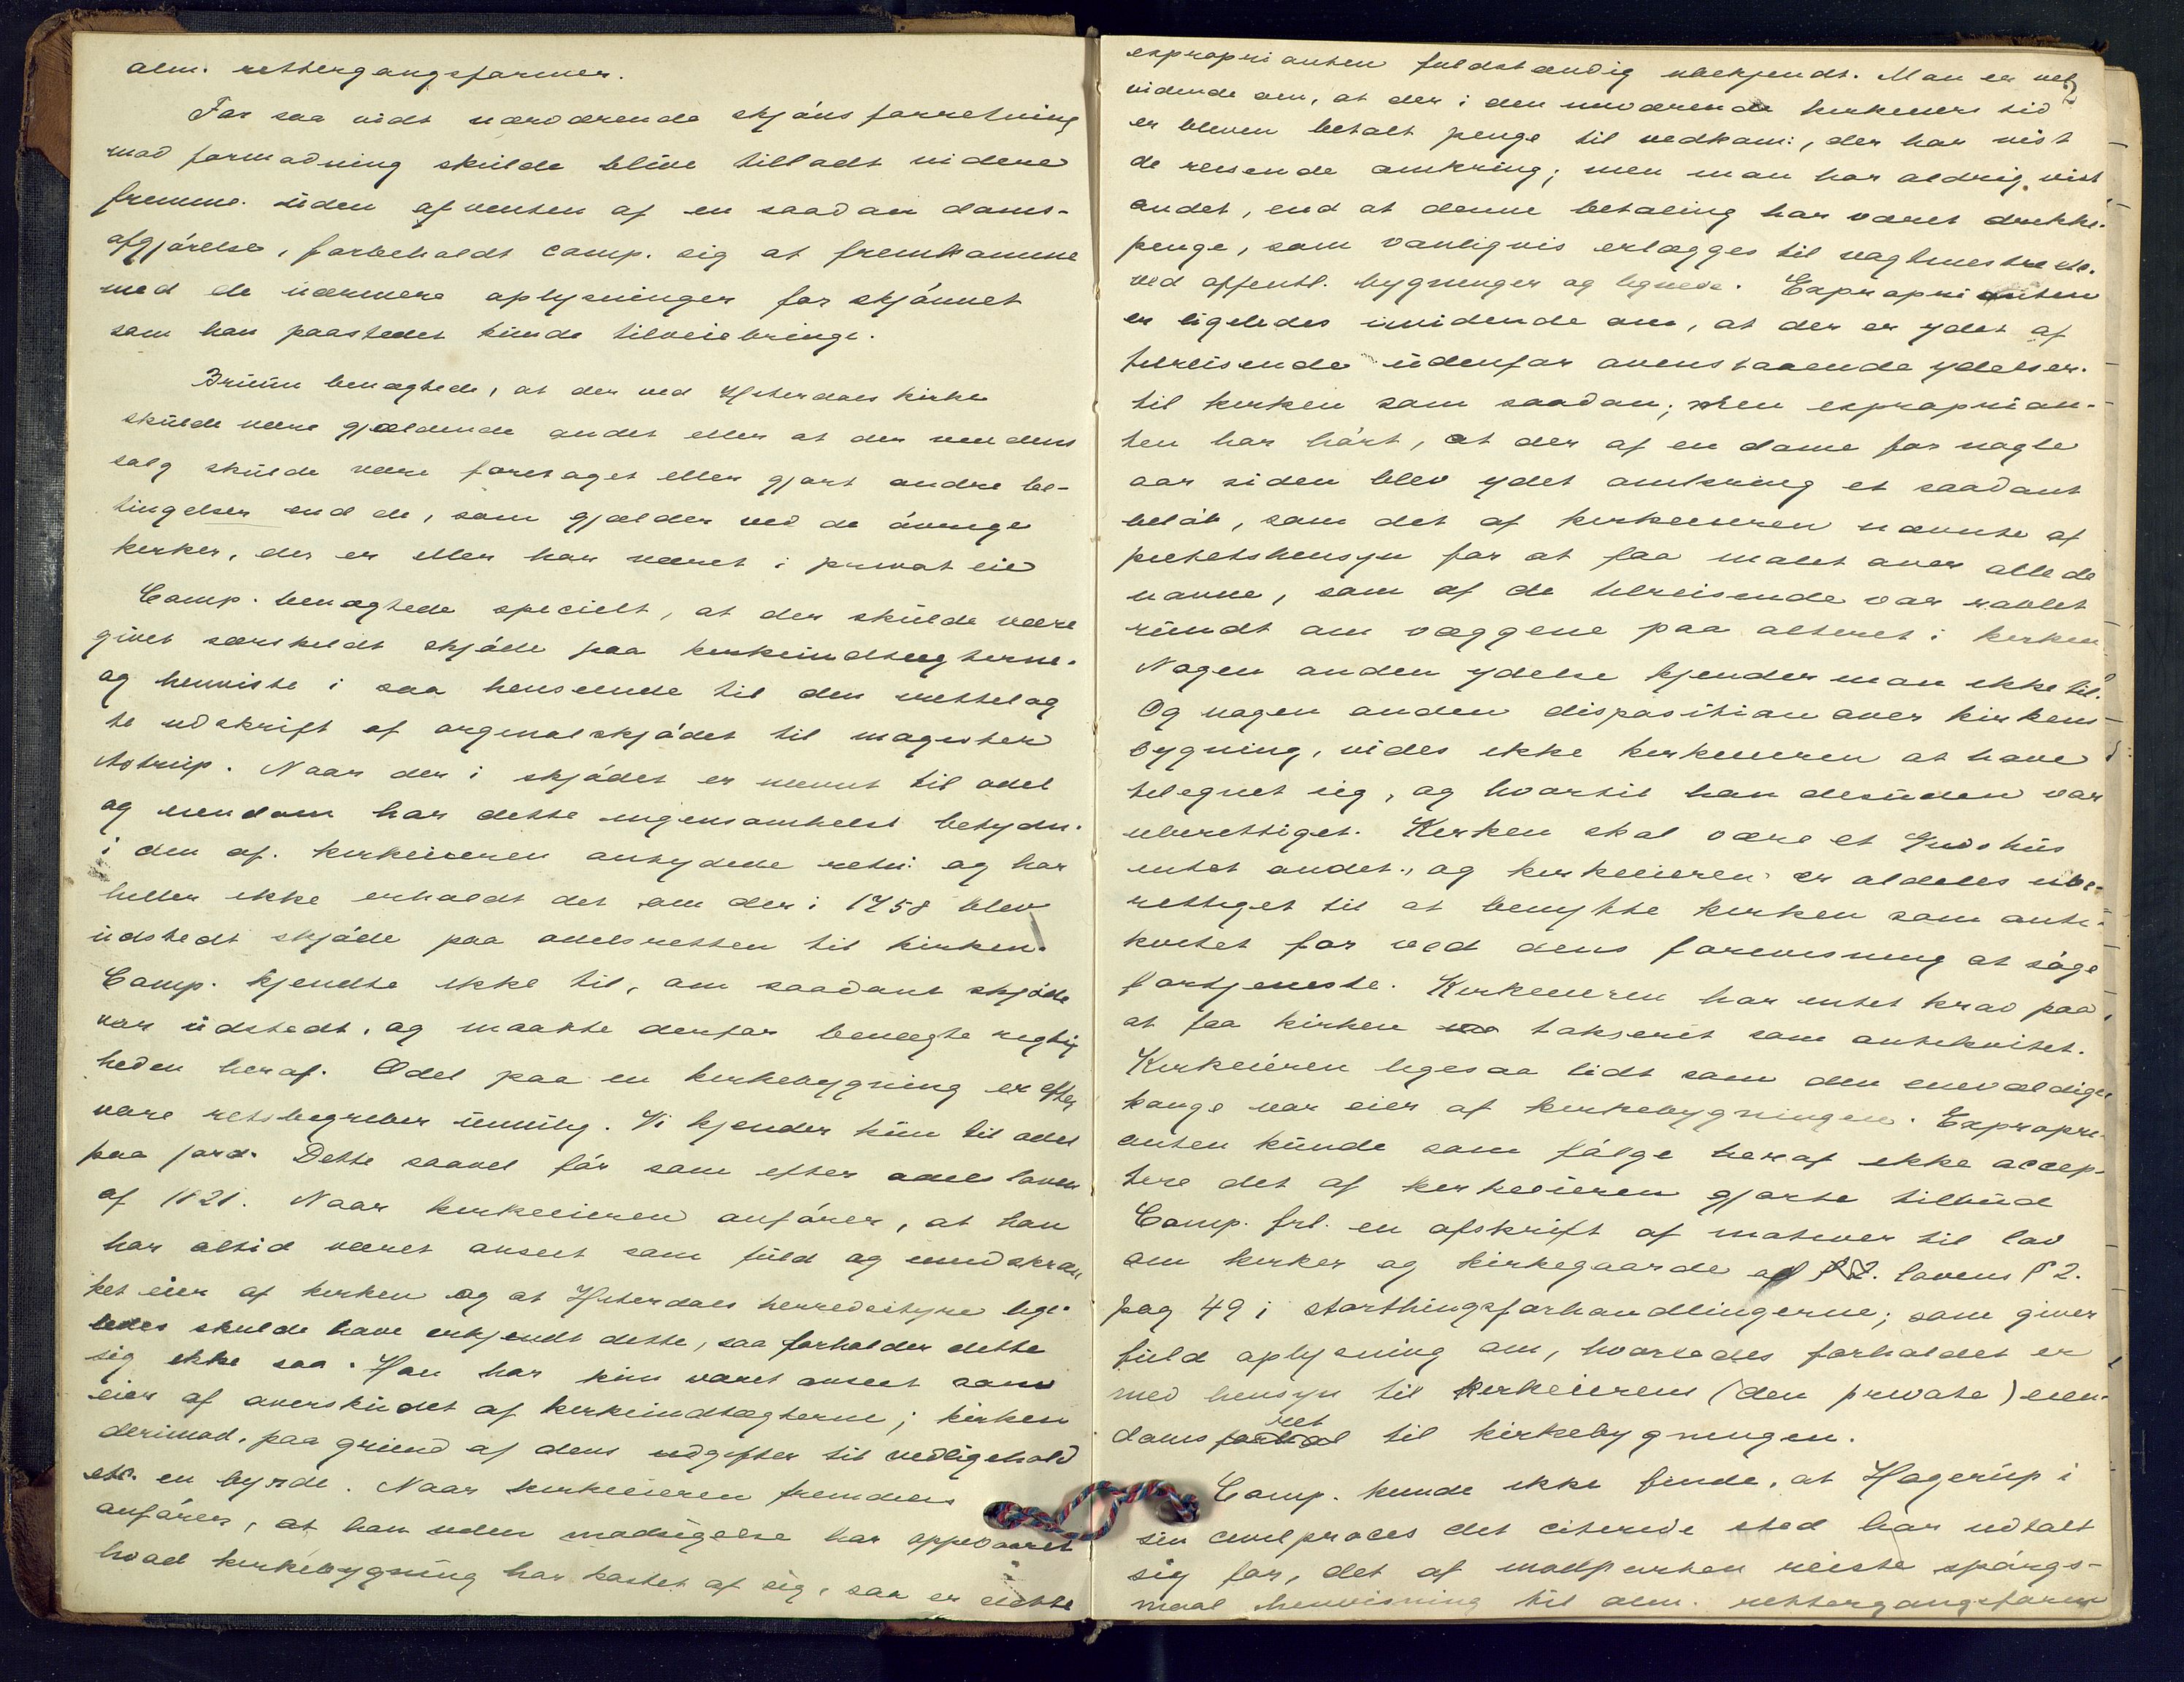 alm. rettergangsformer.
For saa vidt nærværende skjønsforretning
mod formodning skulde blive tilladt videre
fremme uden afventen af en saadan doms-
afgjørelse, forbeholdt comp. sig at fremkomme
med de nærmere oplysninger for skjønnet
som han paastedet kunde tilveiebringe.
Bruun benægtede, at der ved Hiterdals kirke
skulde være gjældende andet eller at der ved dens
salg skulde være foretaget eller gjort andre be-
tingelser end de, som gjælder ved de øvrige
kirker, der er eller har været i privat eie
Comp. benægtede specielt, at der skulde være
givet særskildt skjøde paa kirkeindtægterne.
og henviste i saa henseende til den rettelag
te udskrift af orginalskjødet til magister
Astrup. Naar der i skjødet er nævnt til odel
og eiendom har dette ingensomhelst betydn.
i den af kirkeeieren antydede retn: og har
heller ikke erholdt det om der i 1758 blev
udstedt skjøde paa odelsretten til kirken.
Comp. kjendte ikke til, om saadant skjøde
var udstedt, og maatte derfor benægte rigtig
heden heraf. Odel paa en kirkebygning er efter
vore retsbegreber umulig. Vi kjender kun til odel
paa jord. Dette saavel før som efter odelsloven
af 1821. Naar kirkeeieren anfører, at han
har altid været anseet som fuld og uindskræn
ket eier af kirken og at Hiterdals herredsstyre lige-
ledes skulde have erkjendt dette, saa forholder dette
sig ikke saa. Han har kun været anseet som
eier af overskudet af kirkeindtægterne; kirken
derimod, paa grund af dens udgifter til vedligehold
etc. en byrde. Naar kirkeeieren fremdeles
anfører, at han uden modsigelse har oppebaaret
hvad kirkebygning har kastet af sig, saa er dette
exproprianten fuldstændig ubekjendt. Man er vel
vidende om, at der i den nuværende kirkeeiers tid
er bleven betalt penge til vedkom:, der har vist
de reisende omkring; men man har aldrig vist
andet, end at denne betaling har været drikke-
penge, som vanligvis erlægges til vagtmestre etc.
ved offentl. bygninger og lignede. Exproprianten
er ligeledes uvidende om, at der er ydet af
tilreisende udenfor ovenstaaende ydelser.
til kirken som saadan; men exproprian-
ten har hørt, at der af en dame for nogle
aar siden blev ydet omkring et saadant
beløb, som det af kirkeeieren nævnte af
pietetshensyn for at faa malet over alle de
navne, som af de tilreisende var rablet
rundt om væggene paa alteret i kirken
Nogen anden ydelse kjender man ikke til.
Og nogen anden disposition over kirkens
bygning, vides ikke kirkeeieren at have
tilegnet sig, og hvortil han desuden var
uberettiget. Kirken skal være et Gudshus
intet andet, og kirkeeieren er aldeles ube-
rettiget til at benytte kirken som anti-
kvitet for ved dens forevisning at søge
fortjeneste. Kirkeeieren har intet krav paa
at faa kirken takseret som antikvitet.
Kirkeieren ligesaa lidt som den enevældige
konge var eier af kirkebygningen. Expropri-
anten kunde som følge heraf ikke accep-
tere det af kirkeeieren gjorte tilbud
Comp. frl. en afskrift af motiver til lov
om kirker og kirkegaarde af lovens § 2.
pag 49 i storthingsforhandlingerne; som giver
fuld oplysning om, hvorledes forholdet er
med hensyn til kirkeierens (den private) eien-
doms ret til kirkebygningen.
Comp. kunde ikke finde, at Hagerup i
sin civilproces det citerede sted har udtalt
sig for, det af modparten reiste spørgs-
maal henvisning til alm. rettergangsform